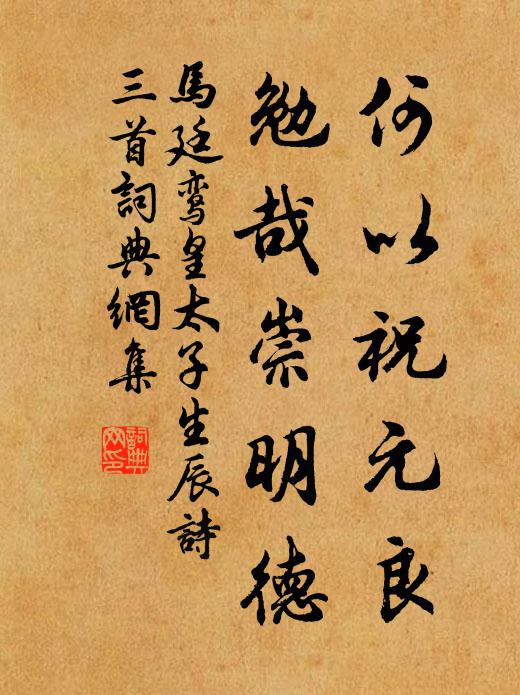 何以祝元良
勉哉崇明德
馬廷鸾皇太子生辰詩
三首詞典網集
詞典
网印